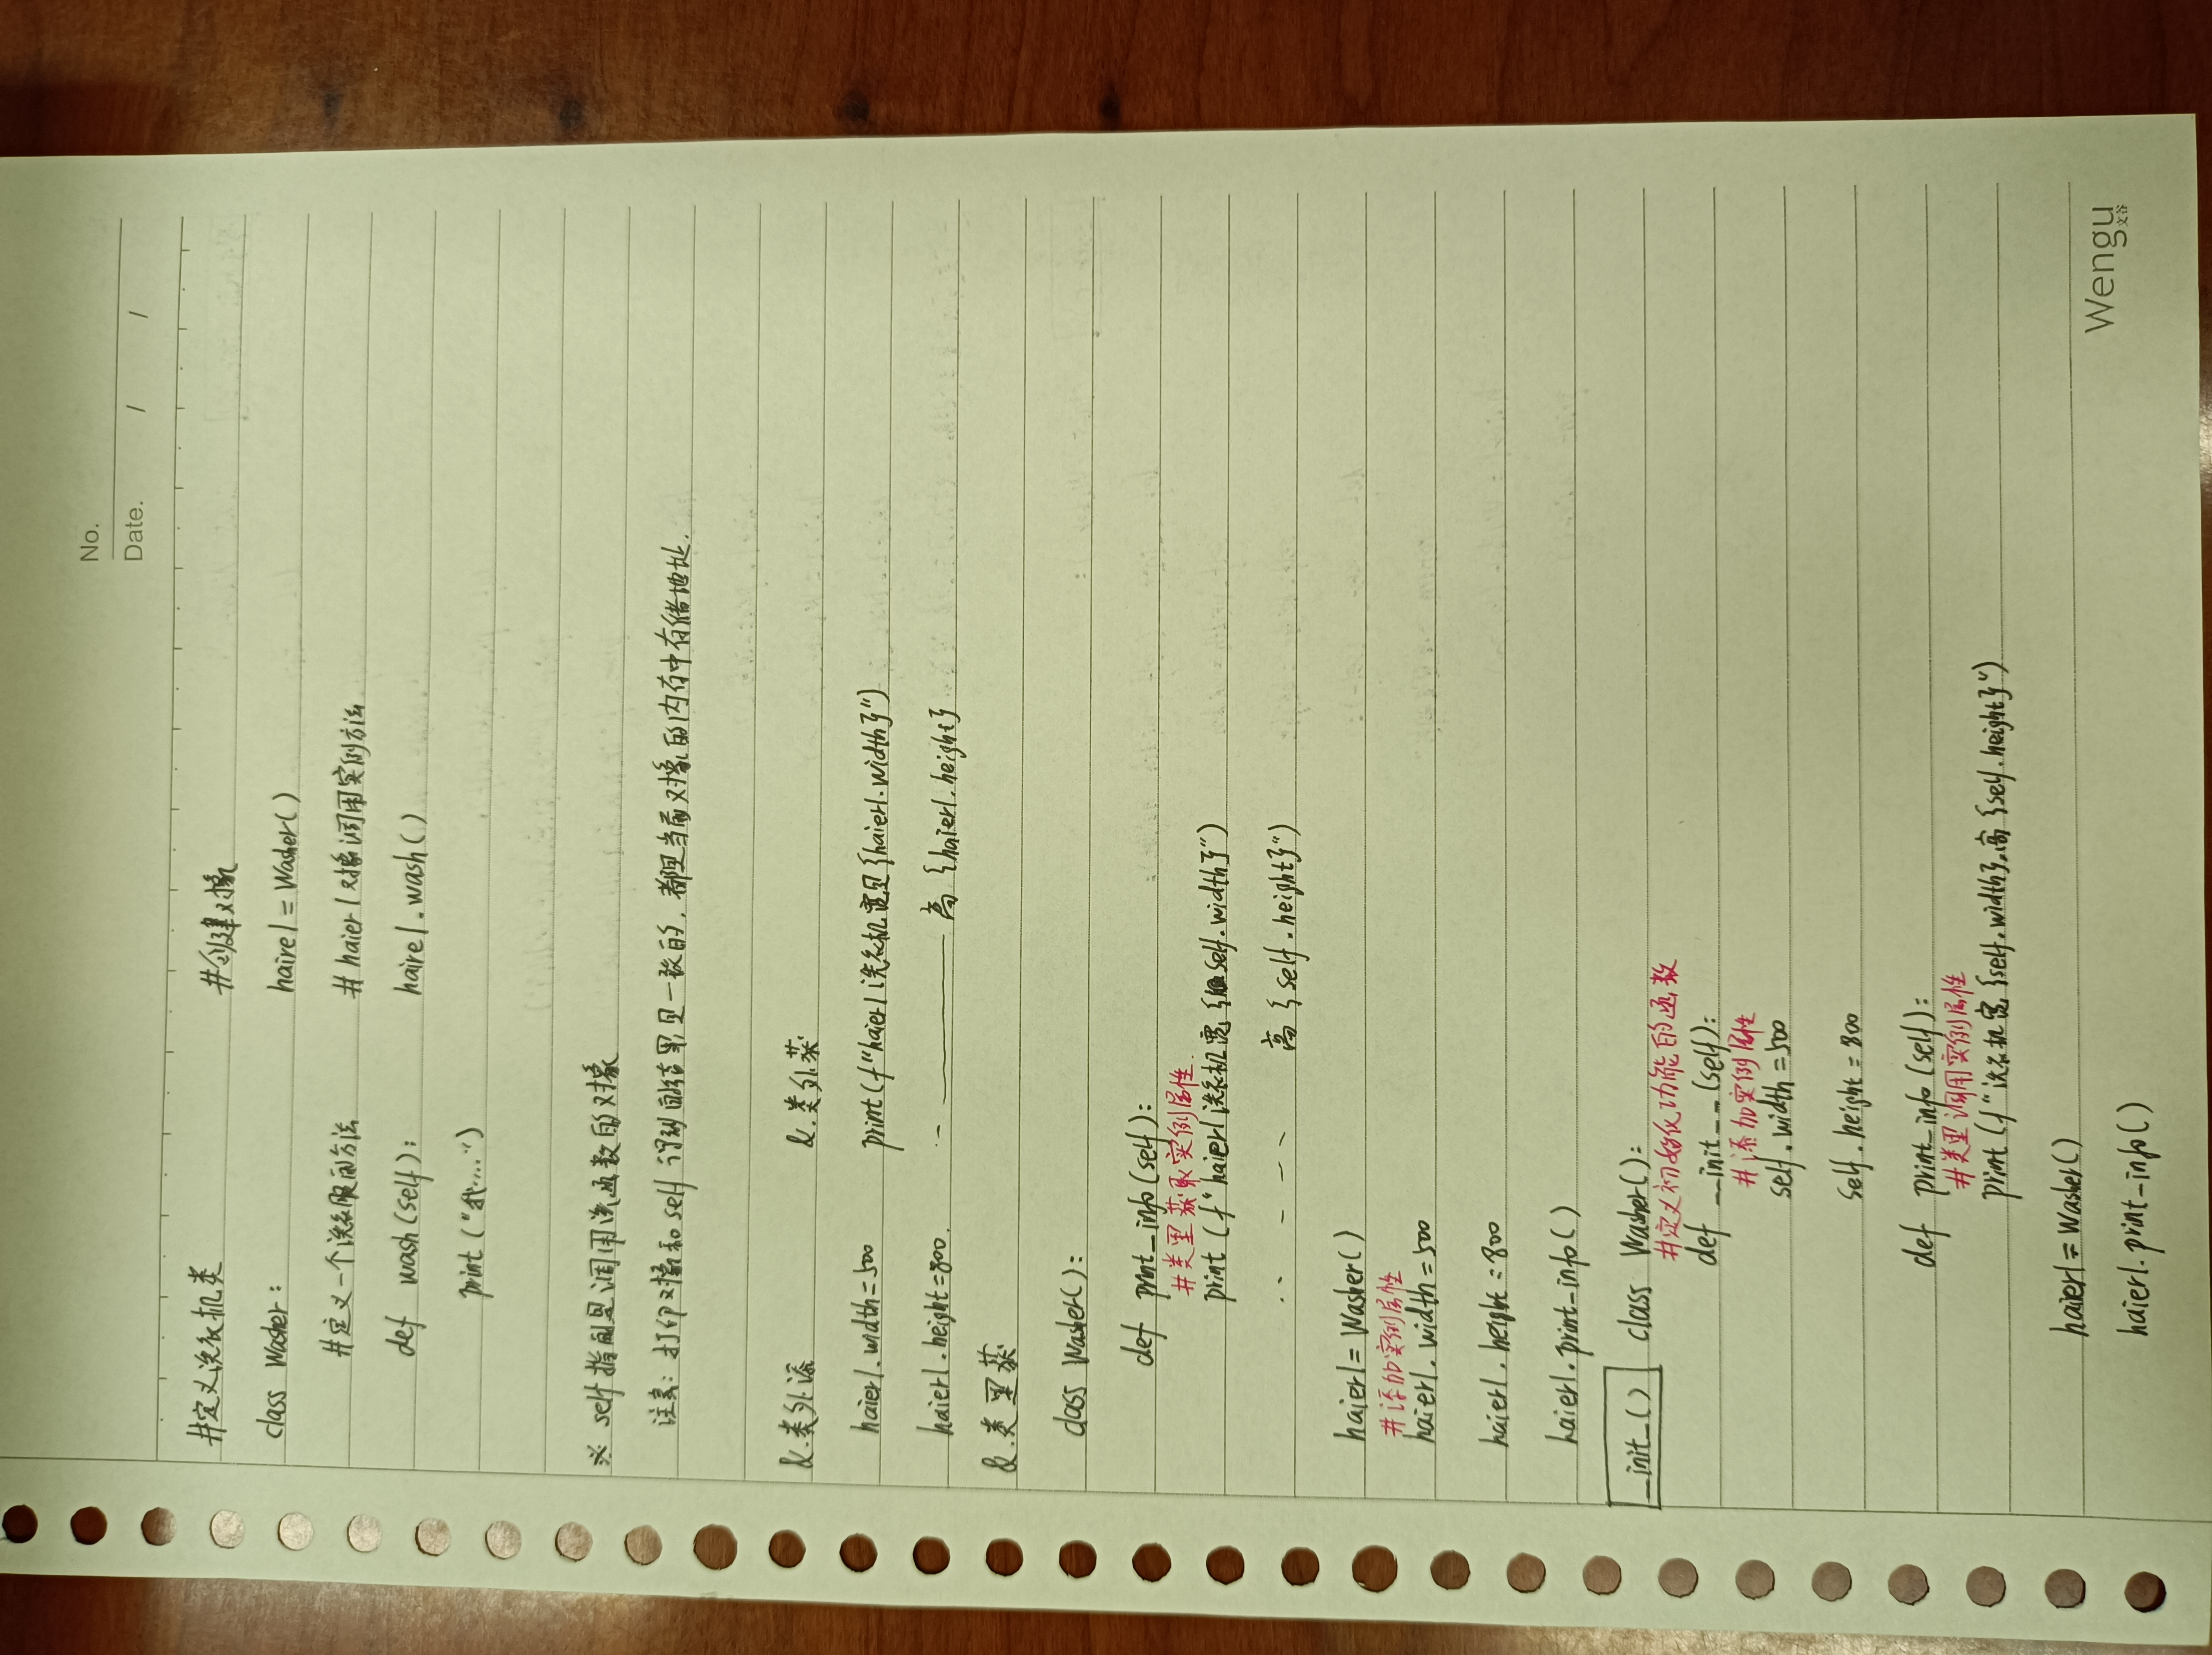 No.
Date. / /
#定义洗衣机类 #创建对象
class Washer: haire1 = Washer()
#定义一个洗衣服的方法 # haier1对象调用实例方法
def wash(self): haire1.wash()
print("我....")
※ self指的是调用该函数的对象
注意: 打印对象和self得到的结果是一致的, 都是当前对象的内存中存储地址.
&.类外添 &.类外获
haier1.width=500 print(f"haier1洗衣机宽是{haier1.width}")
haier1.height=800. 高{haier1.height}
&.类里获
class Washer():
def print_info(self):
#类里获取实例属性.
print(f"haier1洗衣机宽{self.width}")
高{self.height}")
haier1=Washer()
#添加实例属性
haier1.width=500
haier1.height=800
haier1.print_info()
_init_() class Washer():
#定义初始化功能的函数
def __init__(self):
#添加实例属性
self.width=500
self.height=800
def print_info(self):
#类里调用实例属性
print(f"洗衣机宽{self.width},高{self.height}")
haier1=Washer()
haier1.print_info()
Wengu
文谷